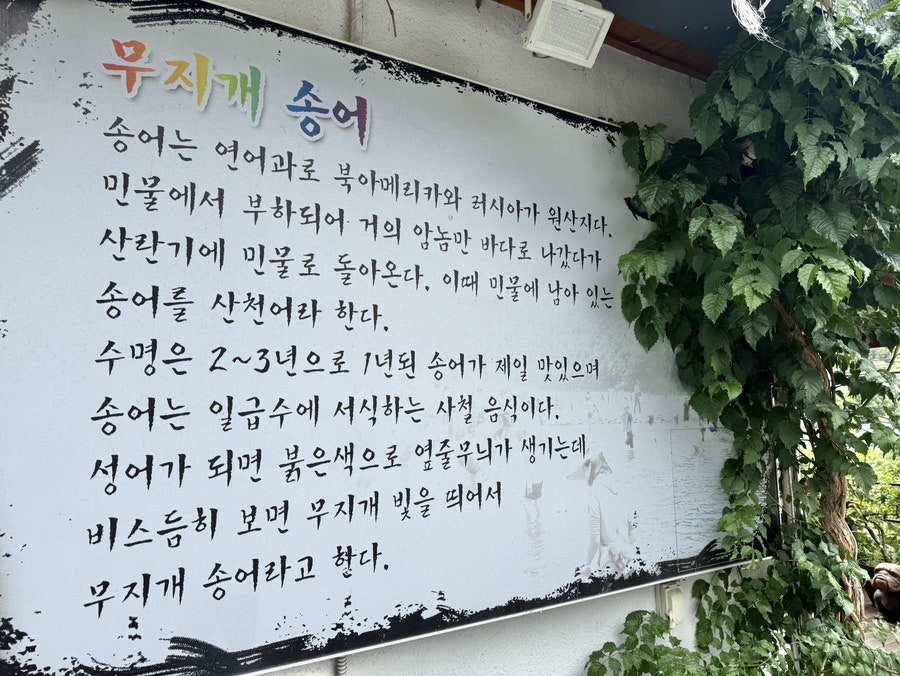 무지개 송어
송어는 연어과로 북아메리카와 러시아가 원산지다.
민물에서 부하되어 거의 암놈만 바다로 나갔다가
산란기에 민물로 돌아온다. 이때 민물에 남아 있는
송어를 산천어라 한다.
수명은 2~3년으로 1년된 송어가 제일 맛있으며
송어는 일급수에 서식하는 사철 음식이다.
성어가 되면 붉은색으로 옆줄무늬가 생기는데
비스듬히 보면 무지개 빛을 띄어서
무지개 송어라고 한다.